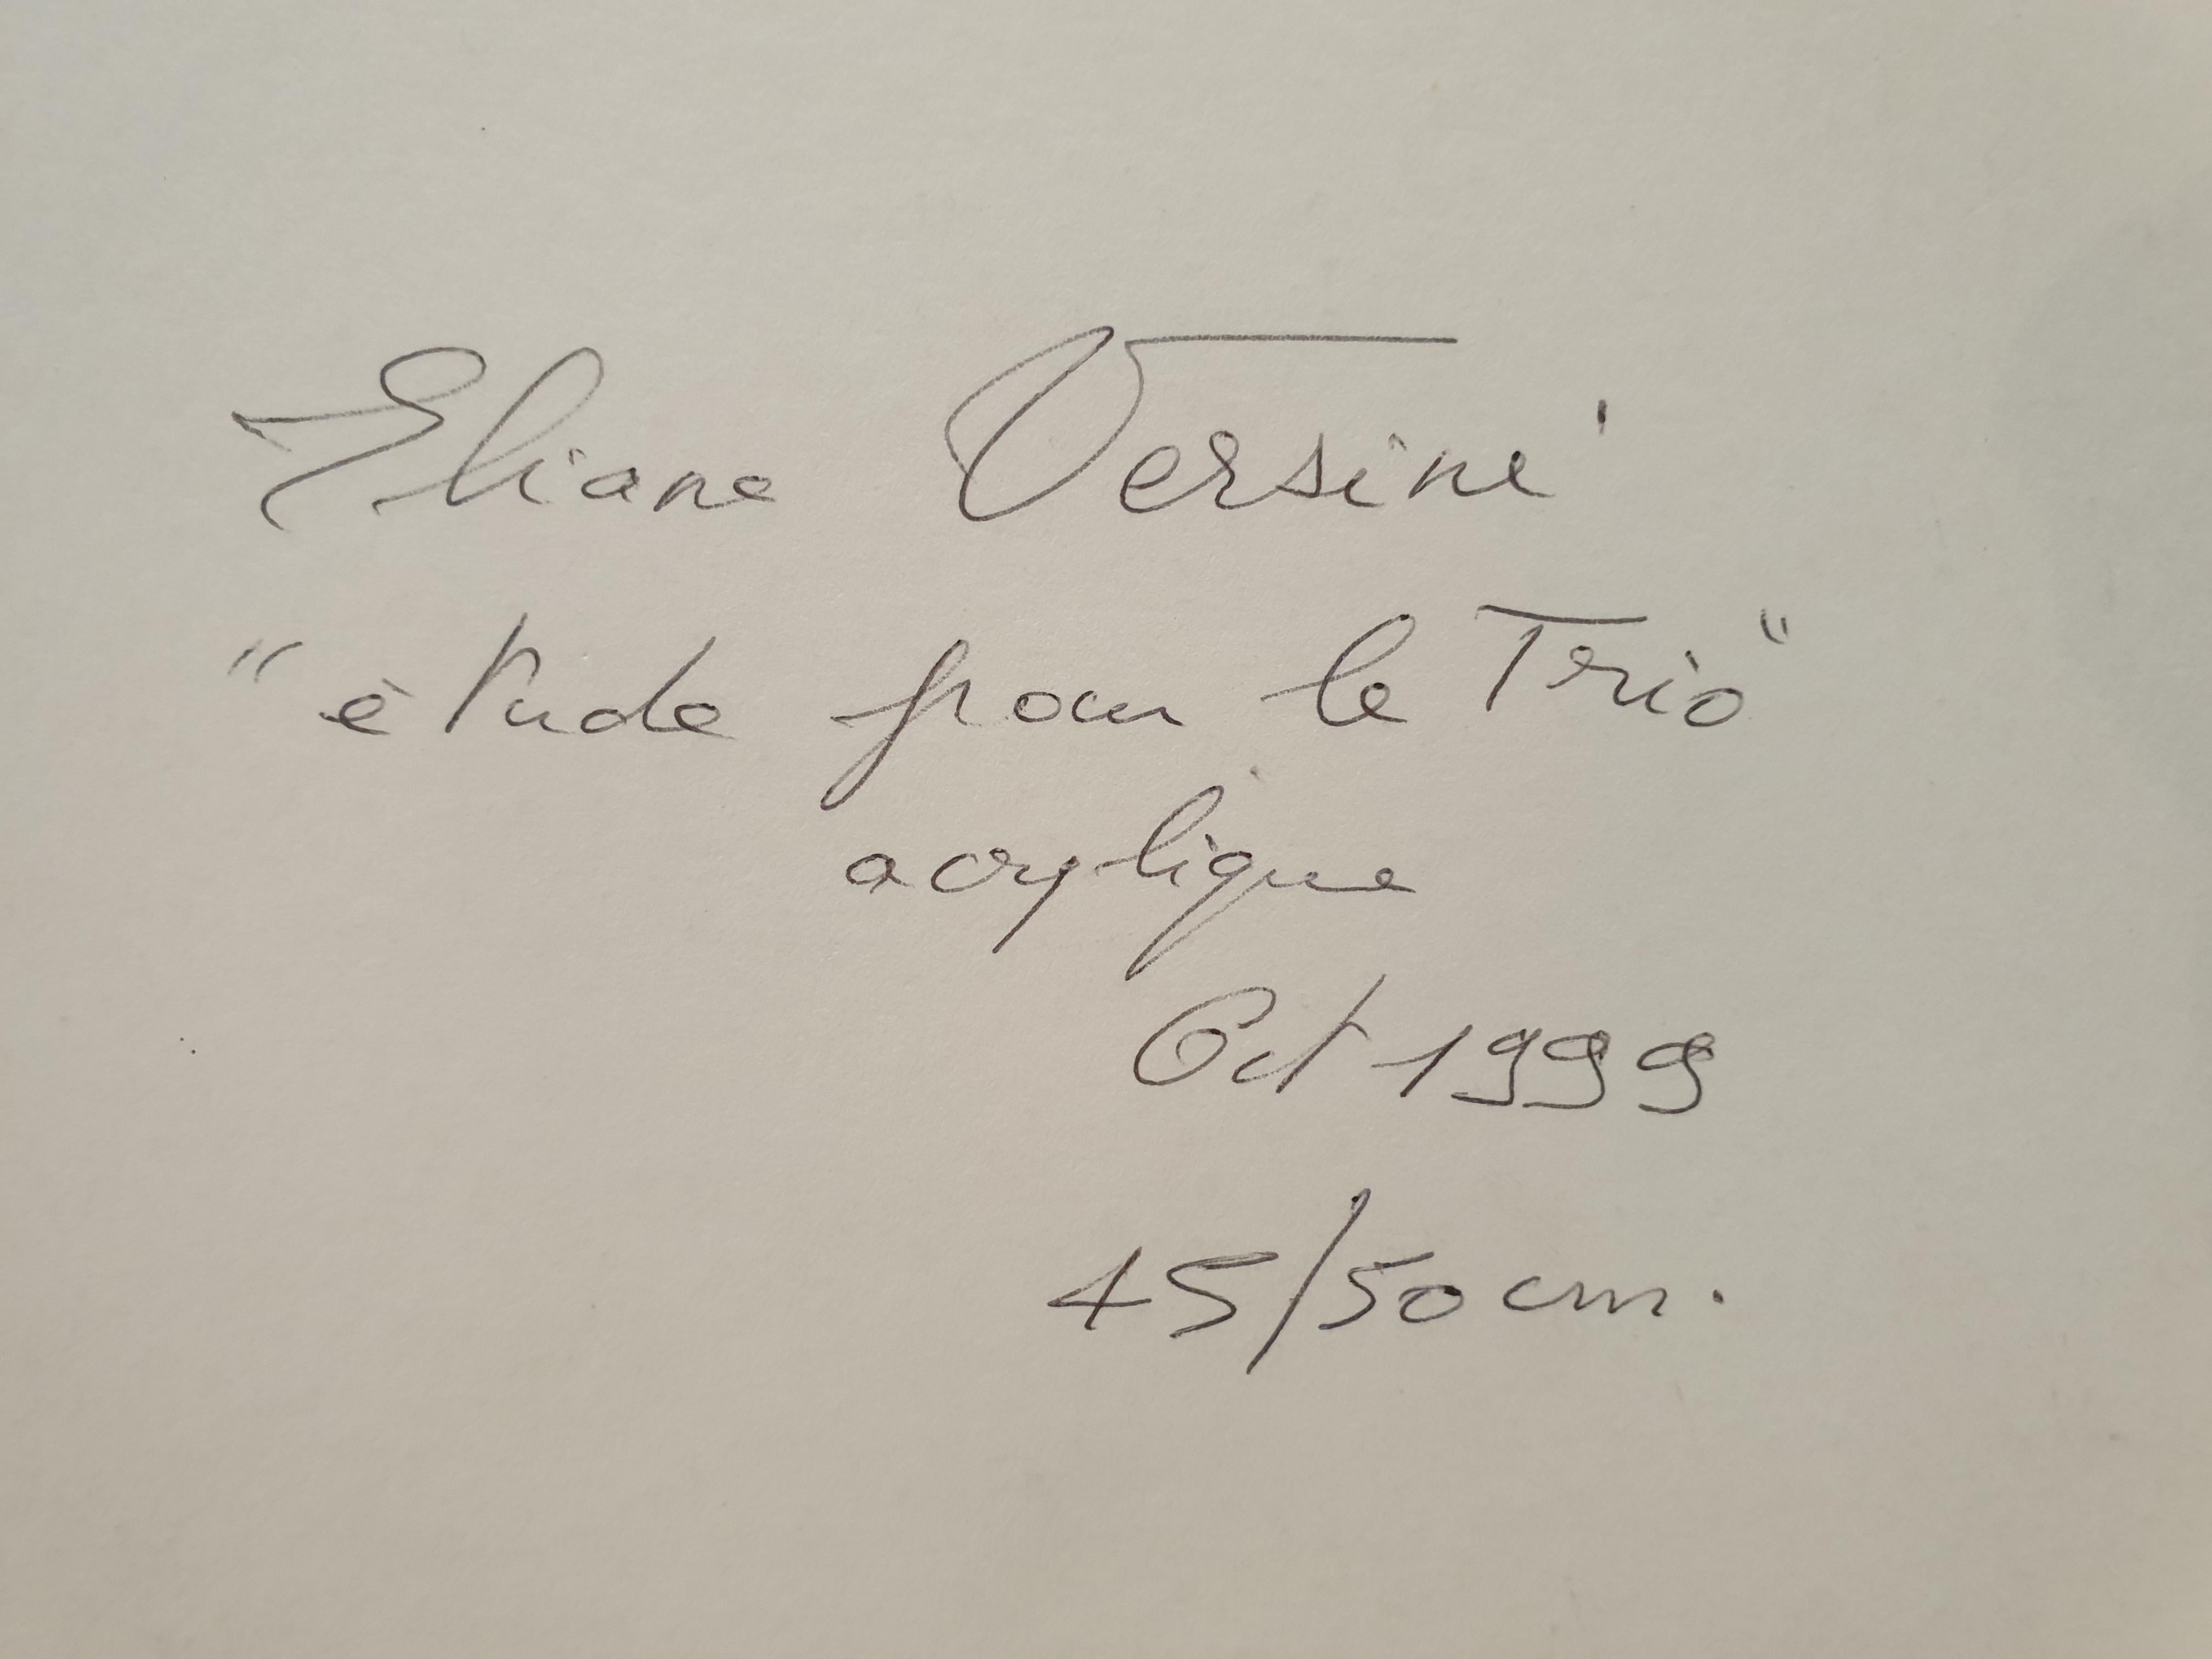 Eliane Versini
"étude pour le Trio"
acrylique
Oct 1999
45/50 cm.